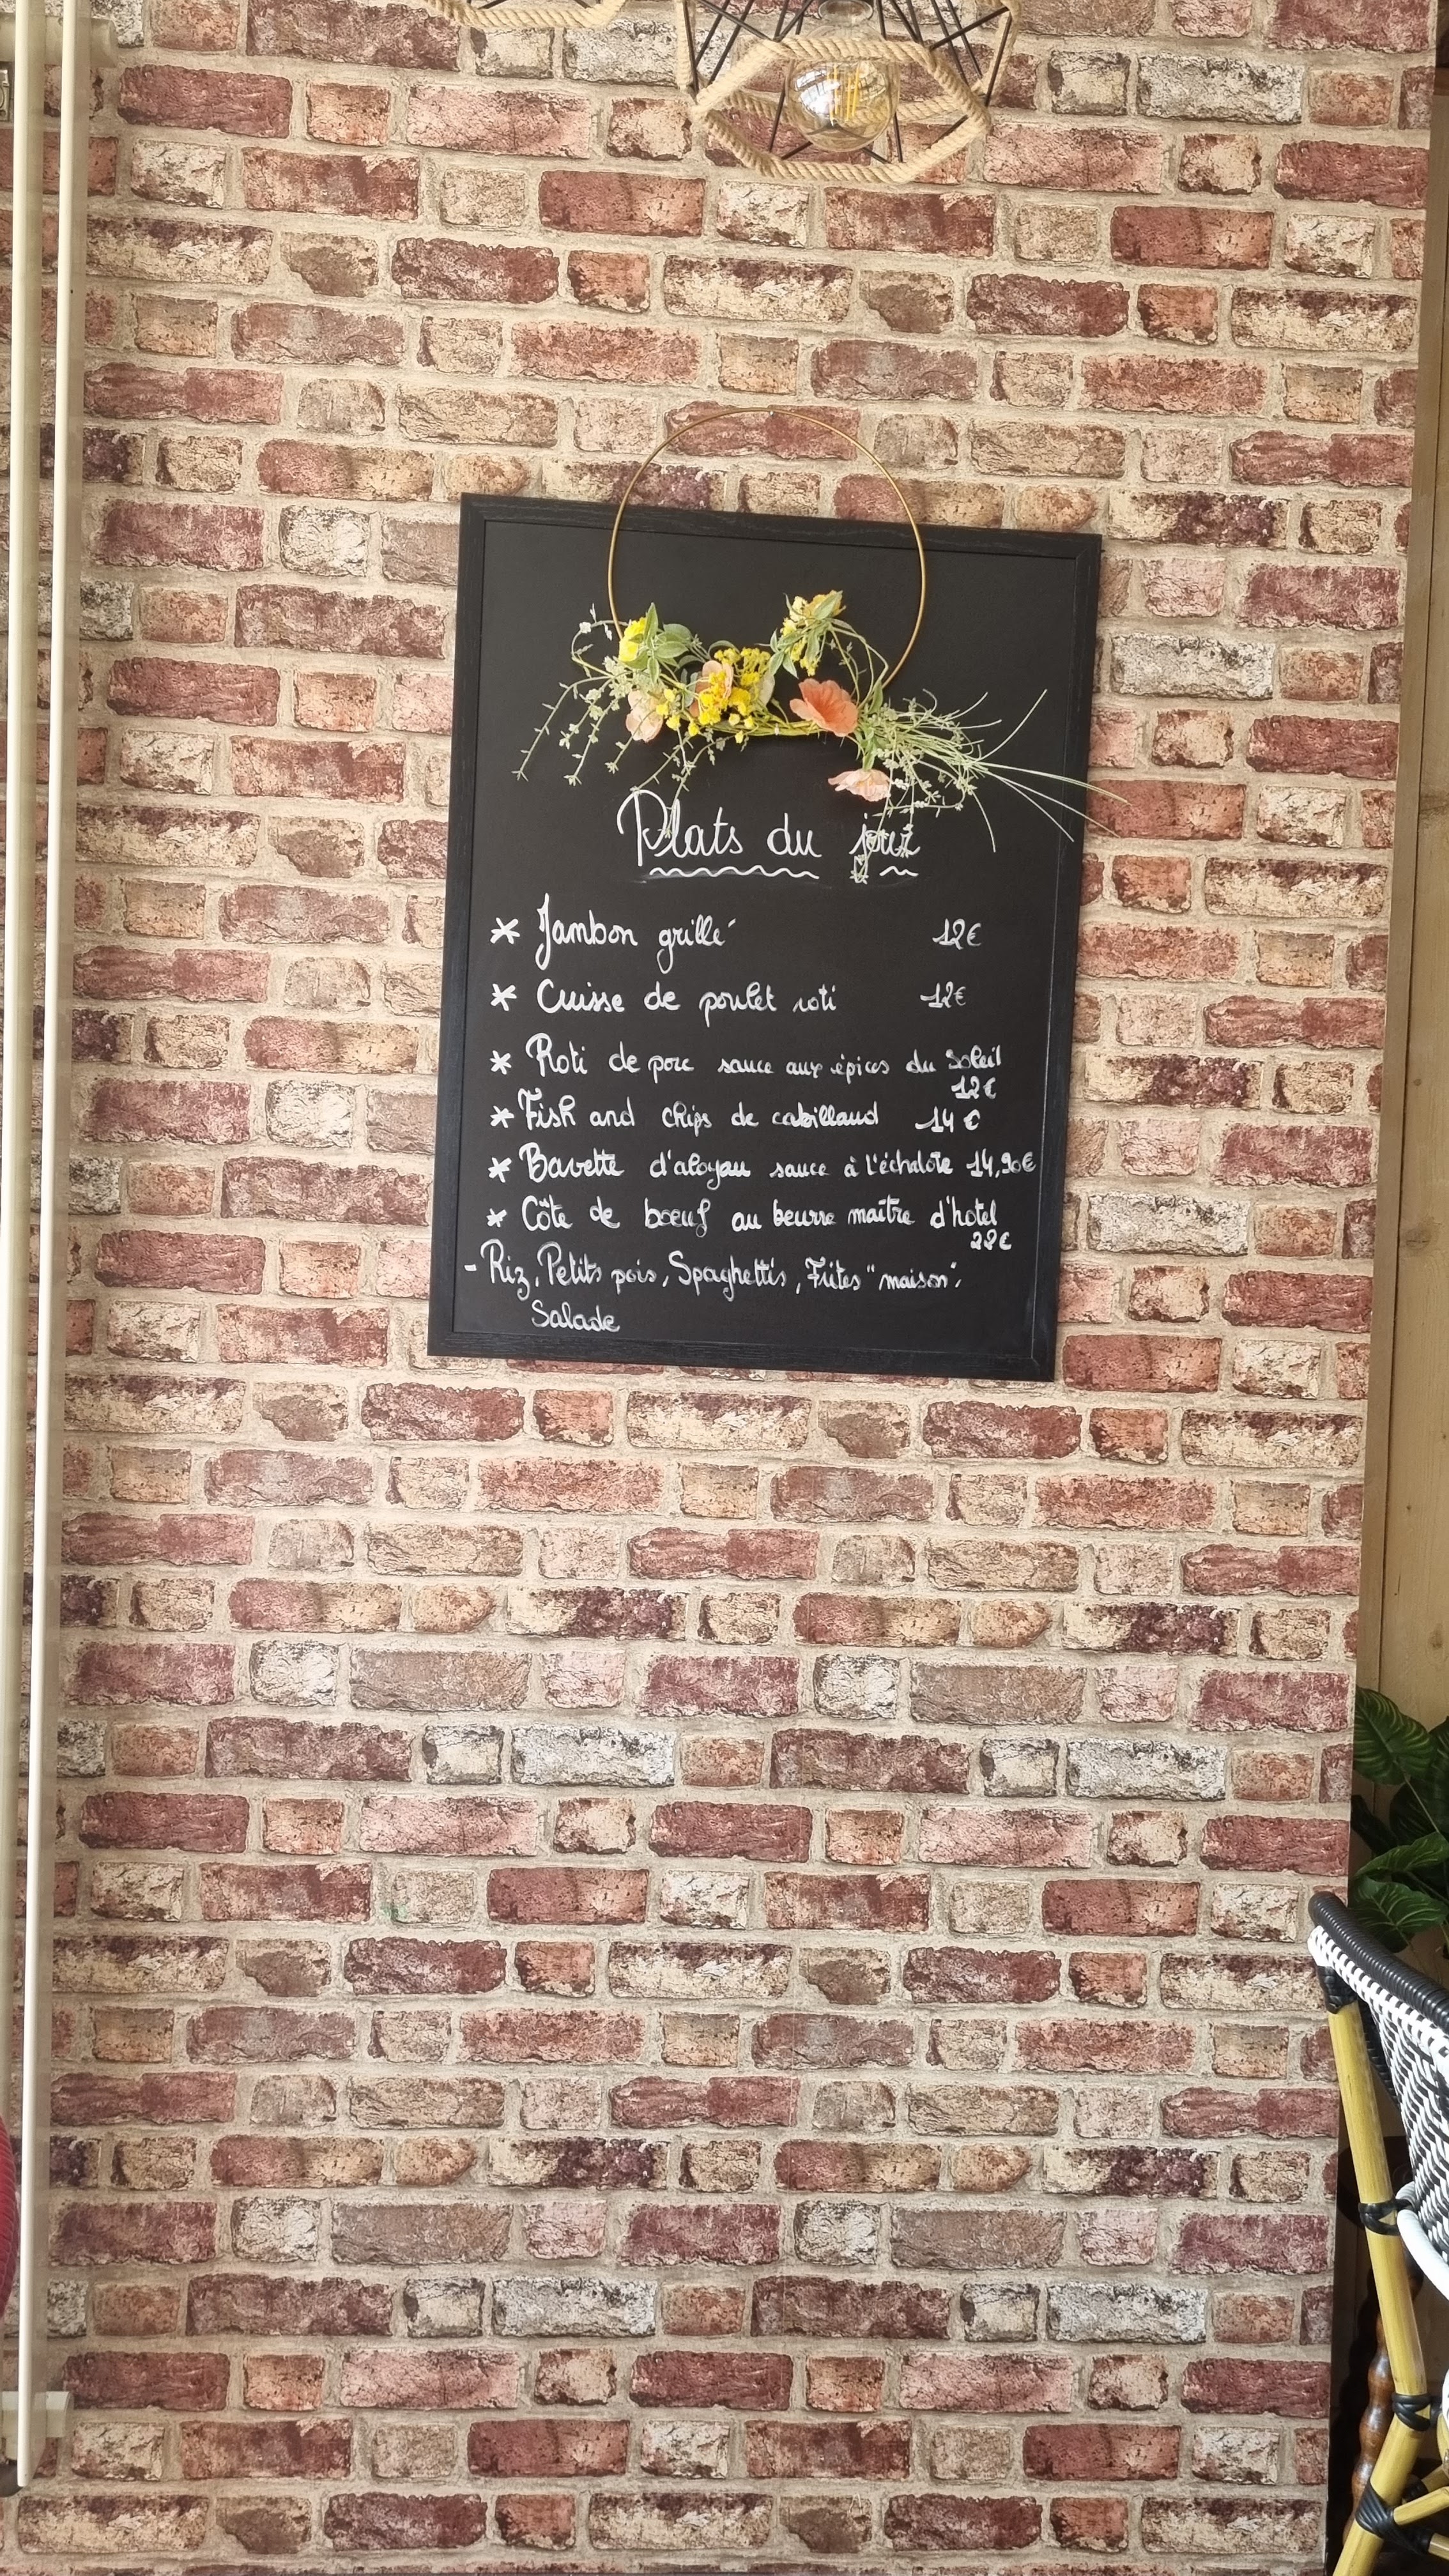 Plats du jour
* Jambon grillé 12€
* Cuisse de poulet roti 12€
* Roti de porc sauce aux épices du Soleil
12€
* Fish and chips de cabillaud 14€
* Bavette d'aloyau sauce à l'échalote 14,90€
* Côte de boeuf au beurre maître d'hotel
28€
- Riz, Petits pois, Spaghettis, Frites "maison",
Salade